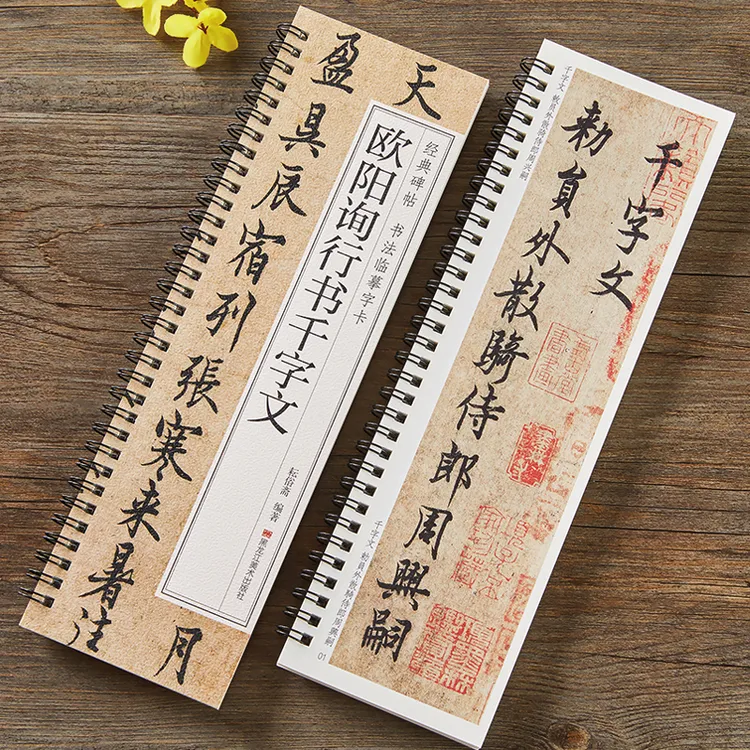 天
月
盈昃辰宿列張寒来暑往
经典碑帖 书法临摹字卡
欧阳询行书千字文
耘俗斋 编著
黑龙江美术出版社
千字文
勑員外散騎侍郎周興嗣
千字文 敕員外散騎侍郎周兴嗣
千字文 敕員外散騎侍郎周興嗣
01